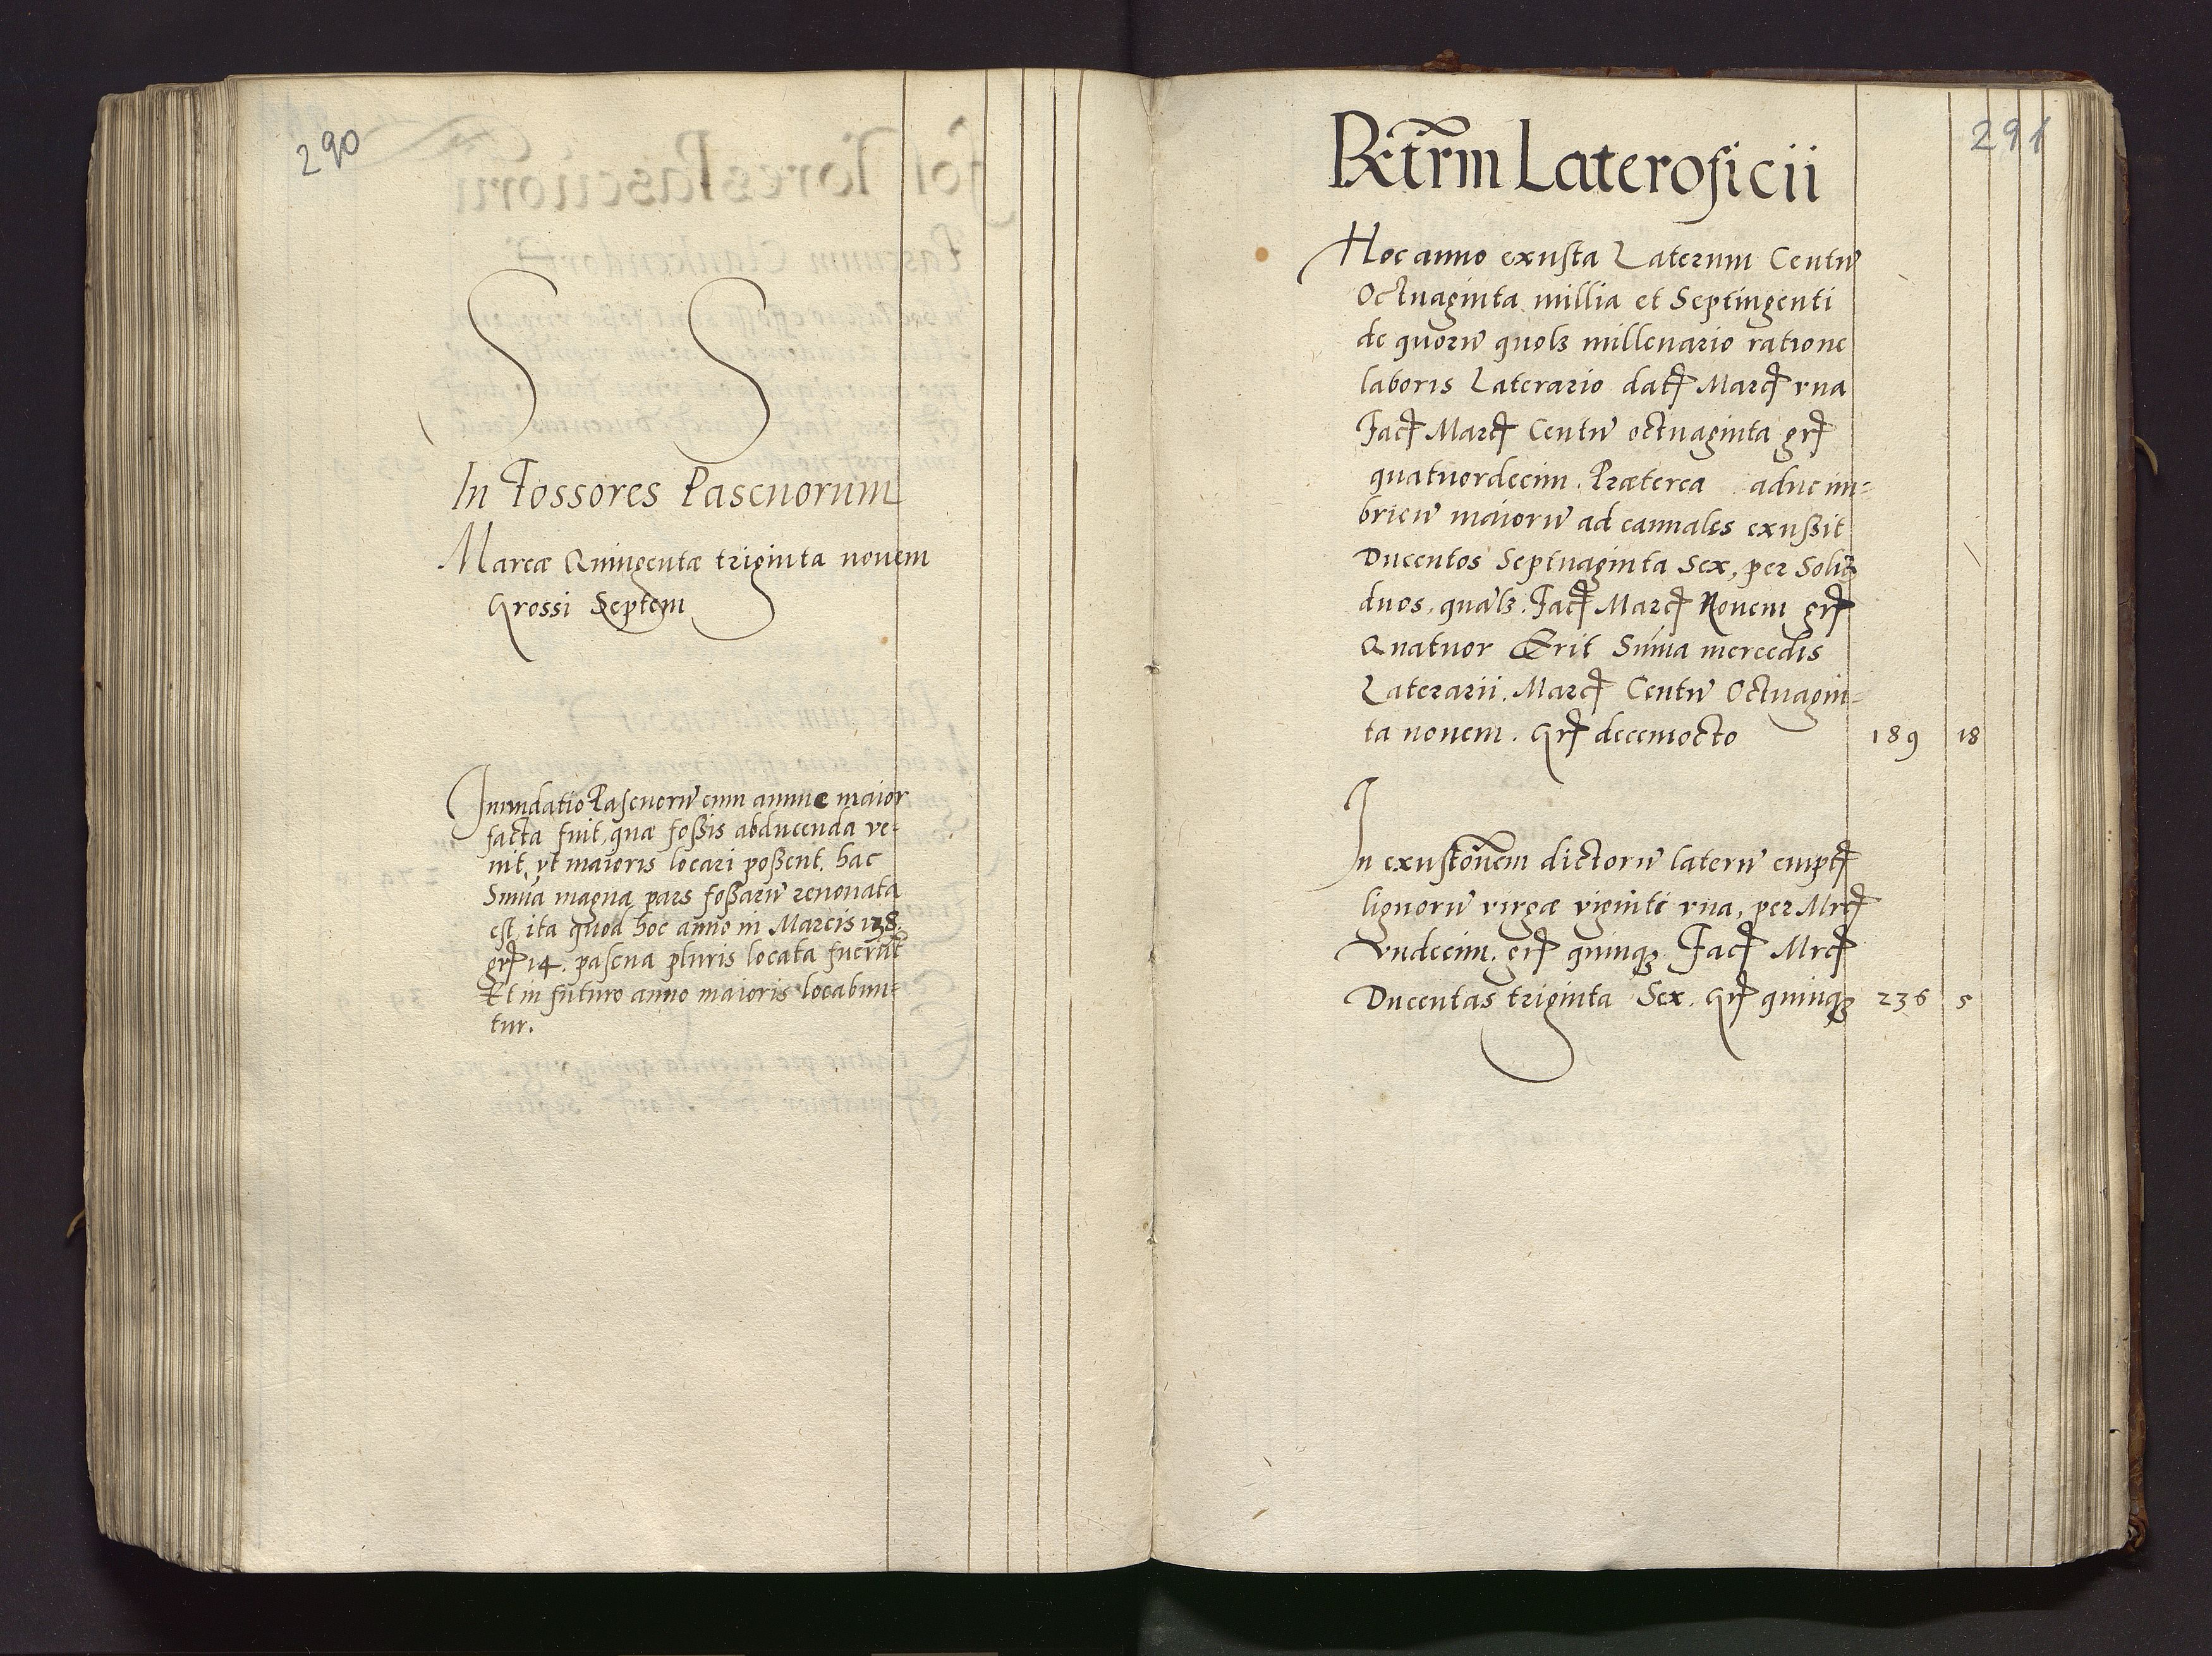 290
S S
In Fossores Pascuorum
Marcæ Quingentæ triginta novem
Grossi Septem
Inundatio Pascuorũ cum annue maior
facta fuit, quæ foßis abducenda ve-
nit, vt maioris locari poßent, hac
Sum̃a magna pars foßarũ renouata
est, ita quod hoc anno in Marcis 138
grß 14. pascua pluris locata fuerũt
Et in futuro anno maioris locabun-
tur.
291
Rctrm Laterificii
Hoc anno exusta Laterum Centũ
Octuaginta millia et Septingenti
de quorũ quolz millenario ratione
laboris Laterario datß Marcß vna
Facß Marcß Centũ octuaginta grß
quatuordecim. Præterea aduc im-
bricũ maiorũ ad cannales exußit
Ducentos Septuaginta Sex, per Soli-
duos, qualz. Facß Marcß Novem grß
Quatuor Erit Sum̃a mercedis
Laterarii. Marcß Centũ Octuagin-
ta novem. Grß decemocto 189 18
In exustõnem dictorũ laterũ emptß
lignorũ virgæ viginti vna, per Mrcß
Vndecim. grß quinqz Facß Mrcß
Ducentas triginta Sex. Grß quinqz 236 5